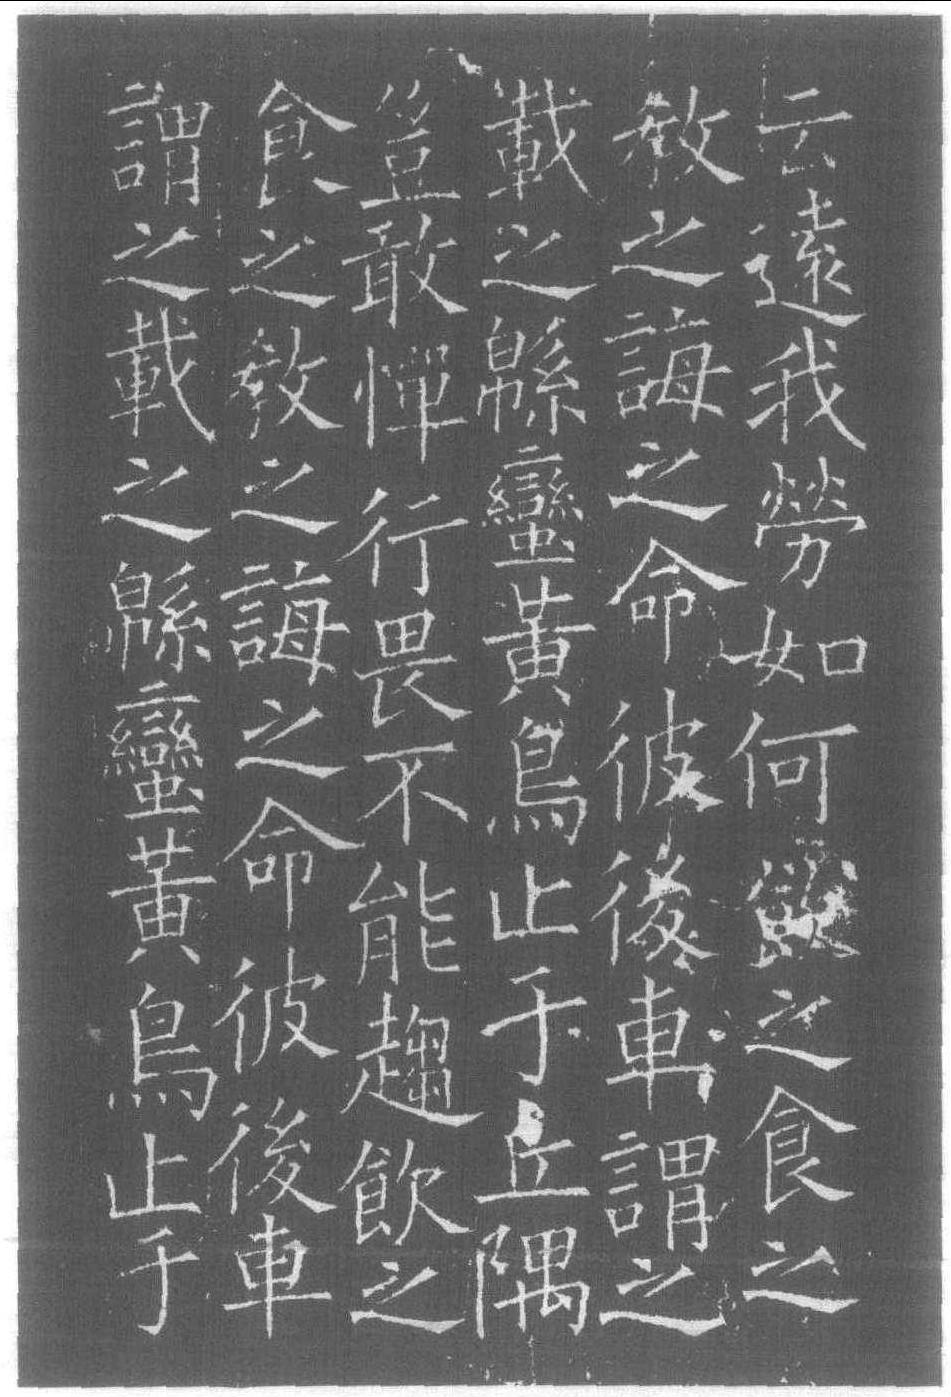 云遠我勞如何飲之食之
教之誨之命彼後車謂之
載之緜蠻黃鳥止于丘隅
豈敢憚行畏不能趨飲之
食之教之誨之命彼後車
謂之載之緜蠻黃鳥止于